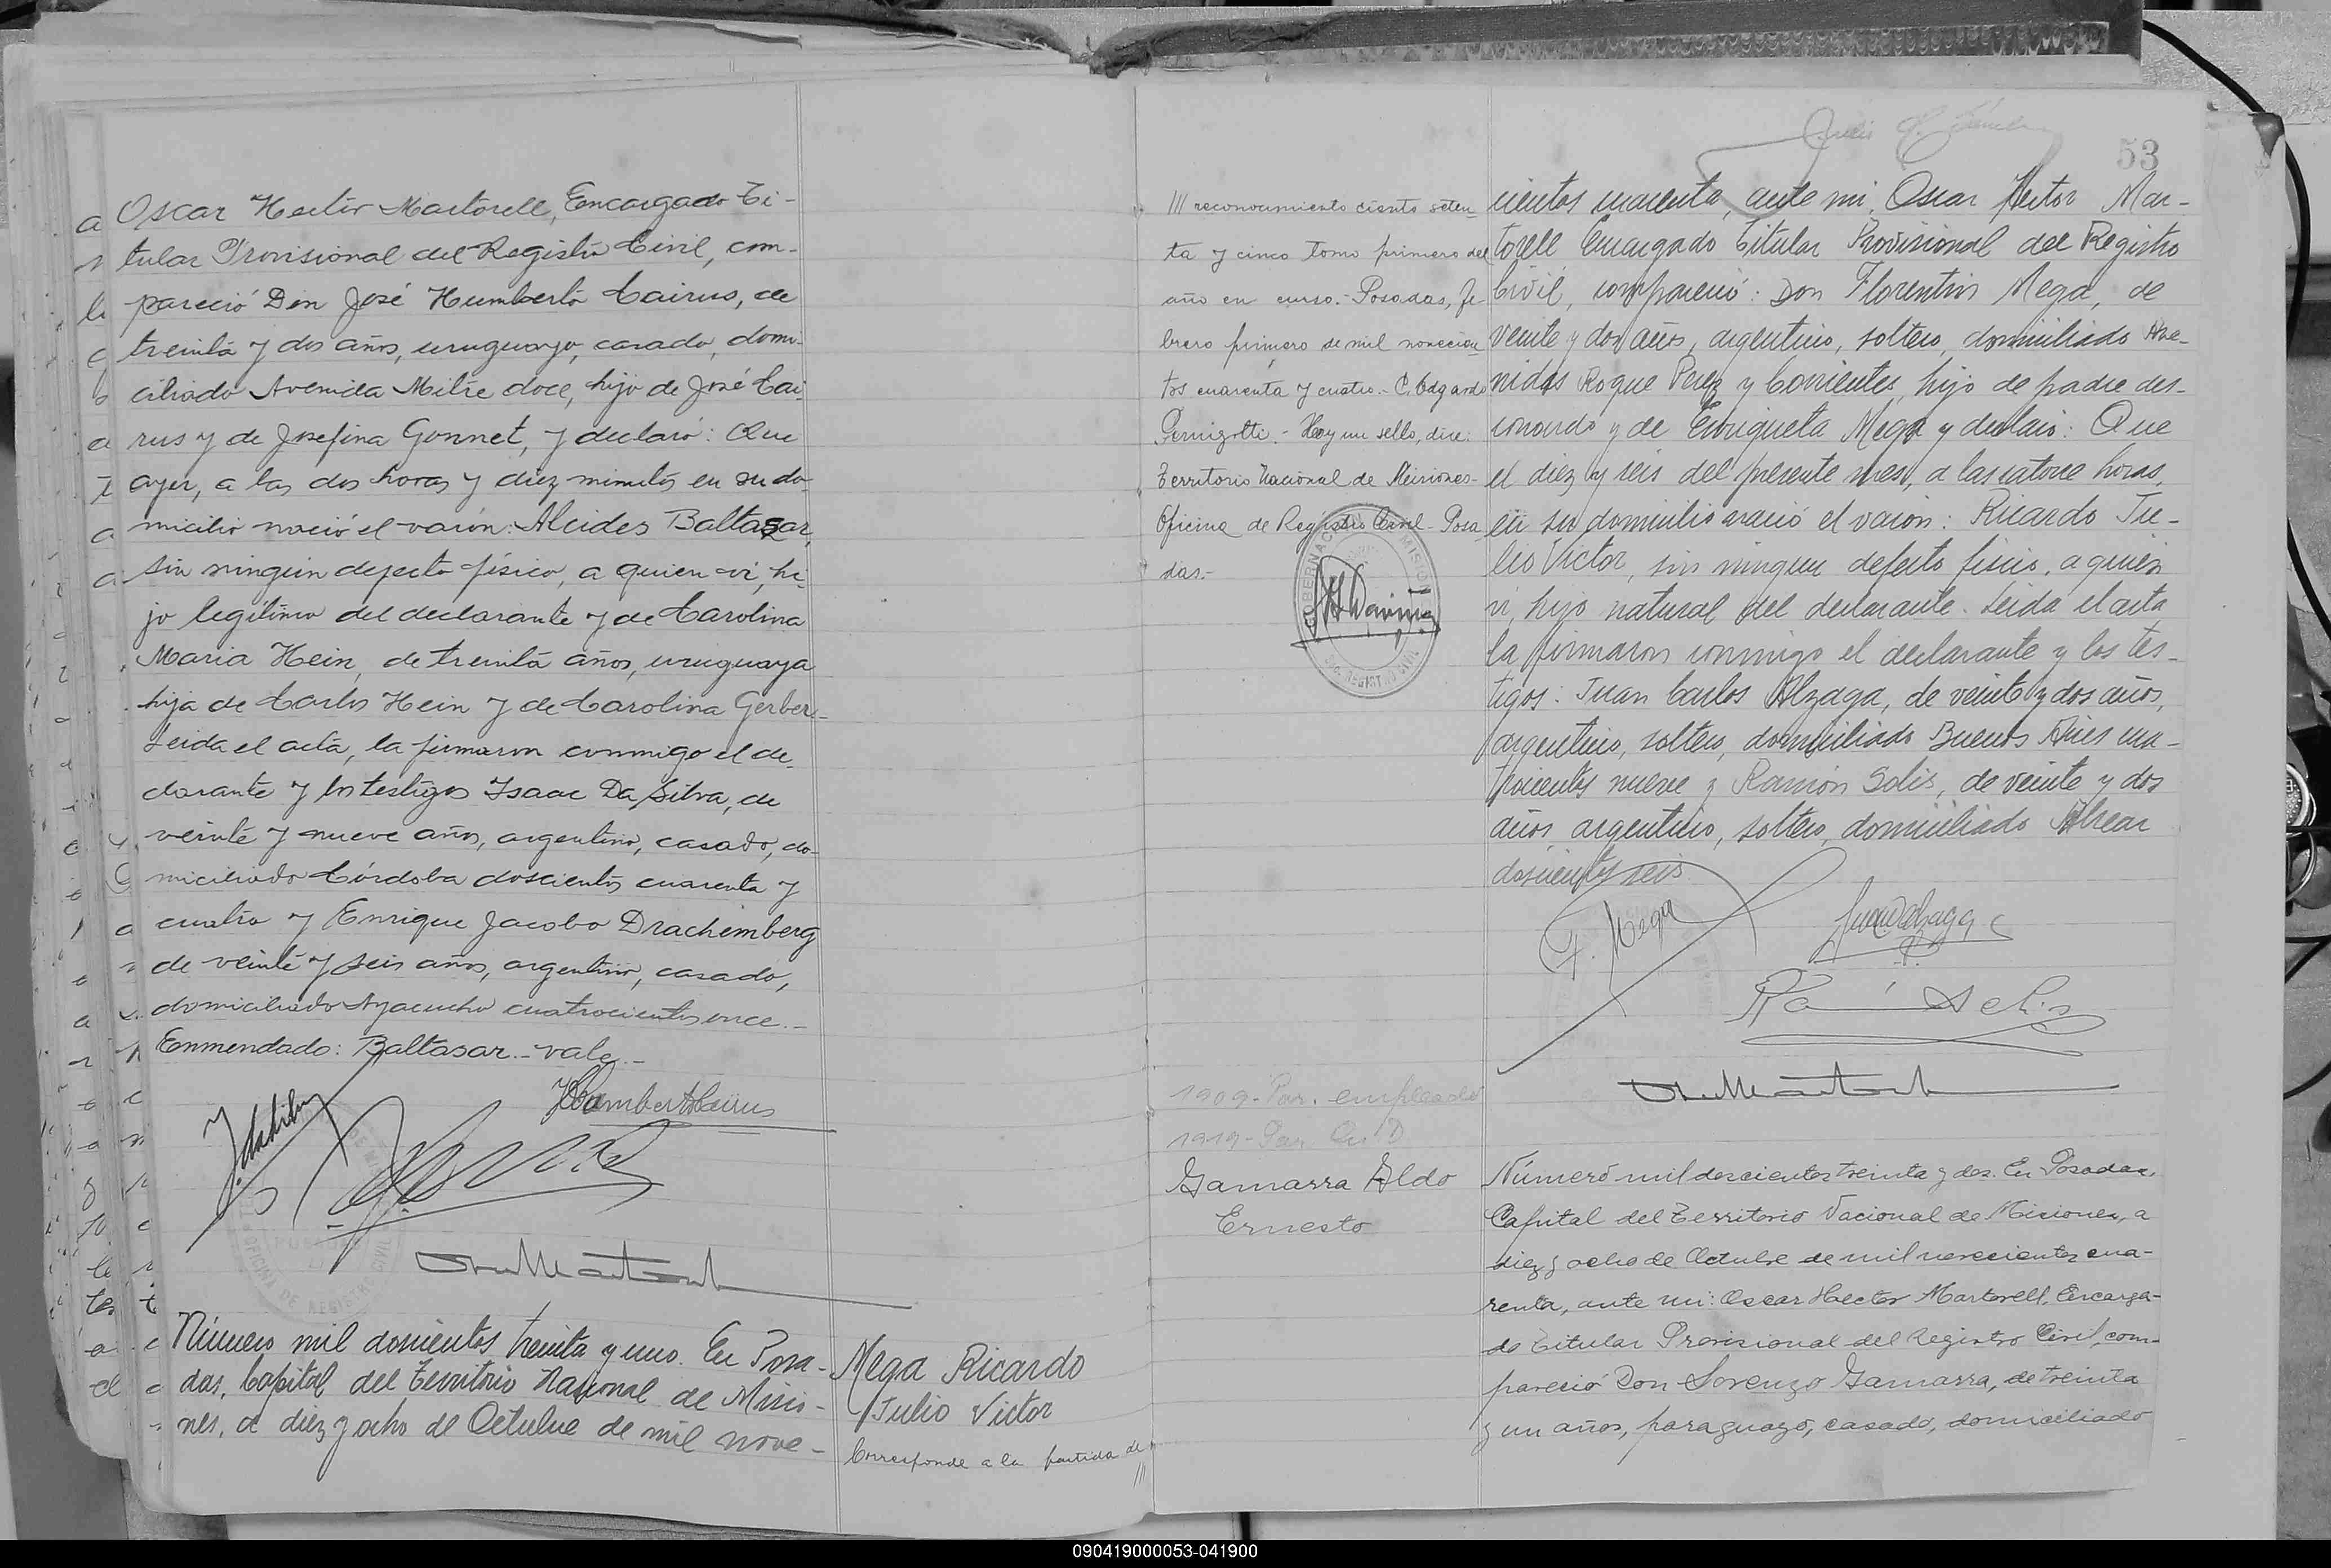 Oscar Hector Martorell, Encargado Ti-
tular Provisional del Registro Civil, com-
pareció Don José Humberto Cairus, de
treinta y dos años, uruguayo, casado, domi-
ciliado Avenida Mitre doce, hijo de José Cai-
rus y de Josefina Gonnet, y declaró: Que
ayer, a las dos horas y diez minutos en su do-
micilio nació el varón: Alcides Baltasar,
sin ningún defecto físico, a quien vi, hi-
jo legítimo del declarante y de Carolina
Maria Hein, de treinta años, uruguaya
hija de Carlos Hein y de Carolina Gerber.-
Leida el acta, la firmaron conmigo el de-
clarante y los testigos Isaac Da Silva, de
veinte y nueve años, argentino, casado, do-
miciliado Córdoba doscientos cuarenta y
cuatro y Enrique Jacobo Drachemberg
de veinte y seis años, argentino, casado,
domiciliado Ayacucho cuatrocientos once.-
Enmendado: Baltasar.- vale.-
JHumbertoCairus
OFICINA DE REGISTRO CIVIL
Número mil doscientos treinta y uno. En Posa-
das, Capital del Territorio Nacional de Misio-
nes, a diez y ocho de Octubre de mil nove-
Mega Ricardo
Julio Victor
Corresponde a la partida de
///
53
/// reconocimiento ciento seten-
ta y cinco tomo primero del
año en curso.- Posadas, Fe-
brero primero de mil novecien-
tos cuarenta y cuatro.- C. Edgardo
Pernigotti.- Hay un sello, dice:
Territorio Nacional de Misiones-
Oficina de Registro Civil- Posa-
das.-
cientos cuarenta, ante mi, Oscar Hector Mar-
torell Encargado Titular Provisional del Registro
Civil, compareció: Don Florentin Mega, de
veinte y dos años, argentino, soltero, domiciliado Ave-
nidas Roque Perez y Corrientes, hijo de padre des-
conocido y de Enriqueta Mega y declaró: Que
el diez y seis del presente mes, a las catorce horas,
en su domicilio nació el varón: Ricardo Ju-
lio Victor, sin ningun defecto físico, a quien
vi, hijo natural del declarante. Leida el acta
la firmaron conmigo el declarante y los tes-
tigos: Juan Carlos Alzaga, de veinte y dos años,
argentino, soltero, domiciliado Buenos Aires cua-
trocientos nueve y Ramón Solis, de veinte y dos
años, argentino, soltero, domiciliado Alvear
doscientos seis
F. Mega
1909- Par. empleado
1919- Par.
Gamarra Aldo
Ernesto
Número mil doscientos treinta y dos. En Posadas,
Capital del Territorio Nacional de Misiones, a
diez y ocho de Octubre de mil novecientos cua-
renta, ante mi: Oscar Hector Martorell, Encarga-
do Titular Provisional del Registro Civil, com-
pareció Don Lorenzo Gamarra, de treinta
y un años, paraguayo, casado, domiciliado
090419000053-041900